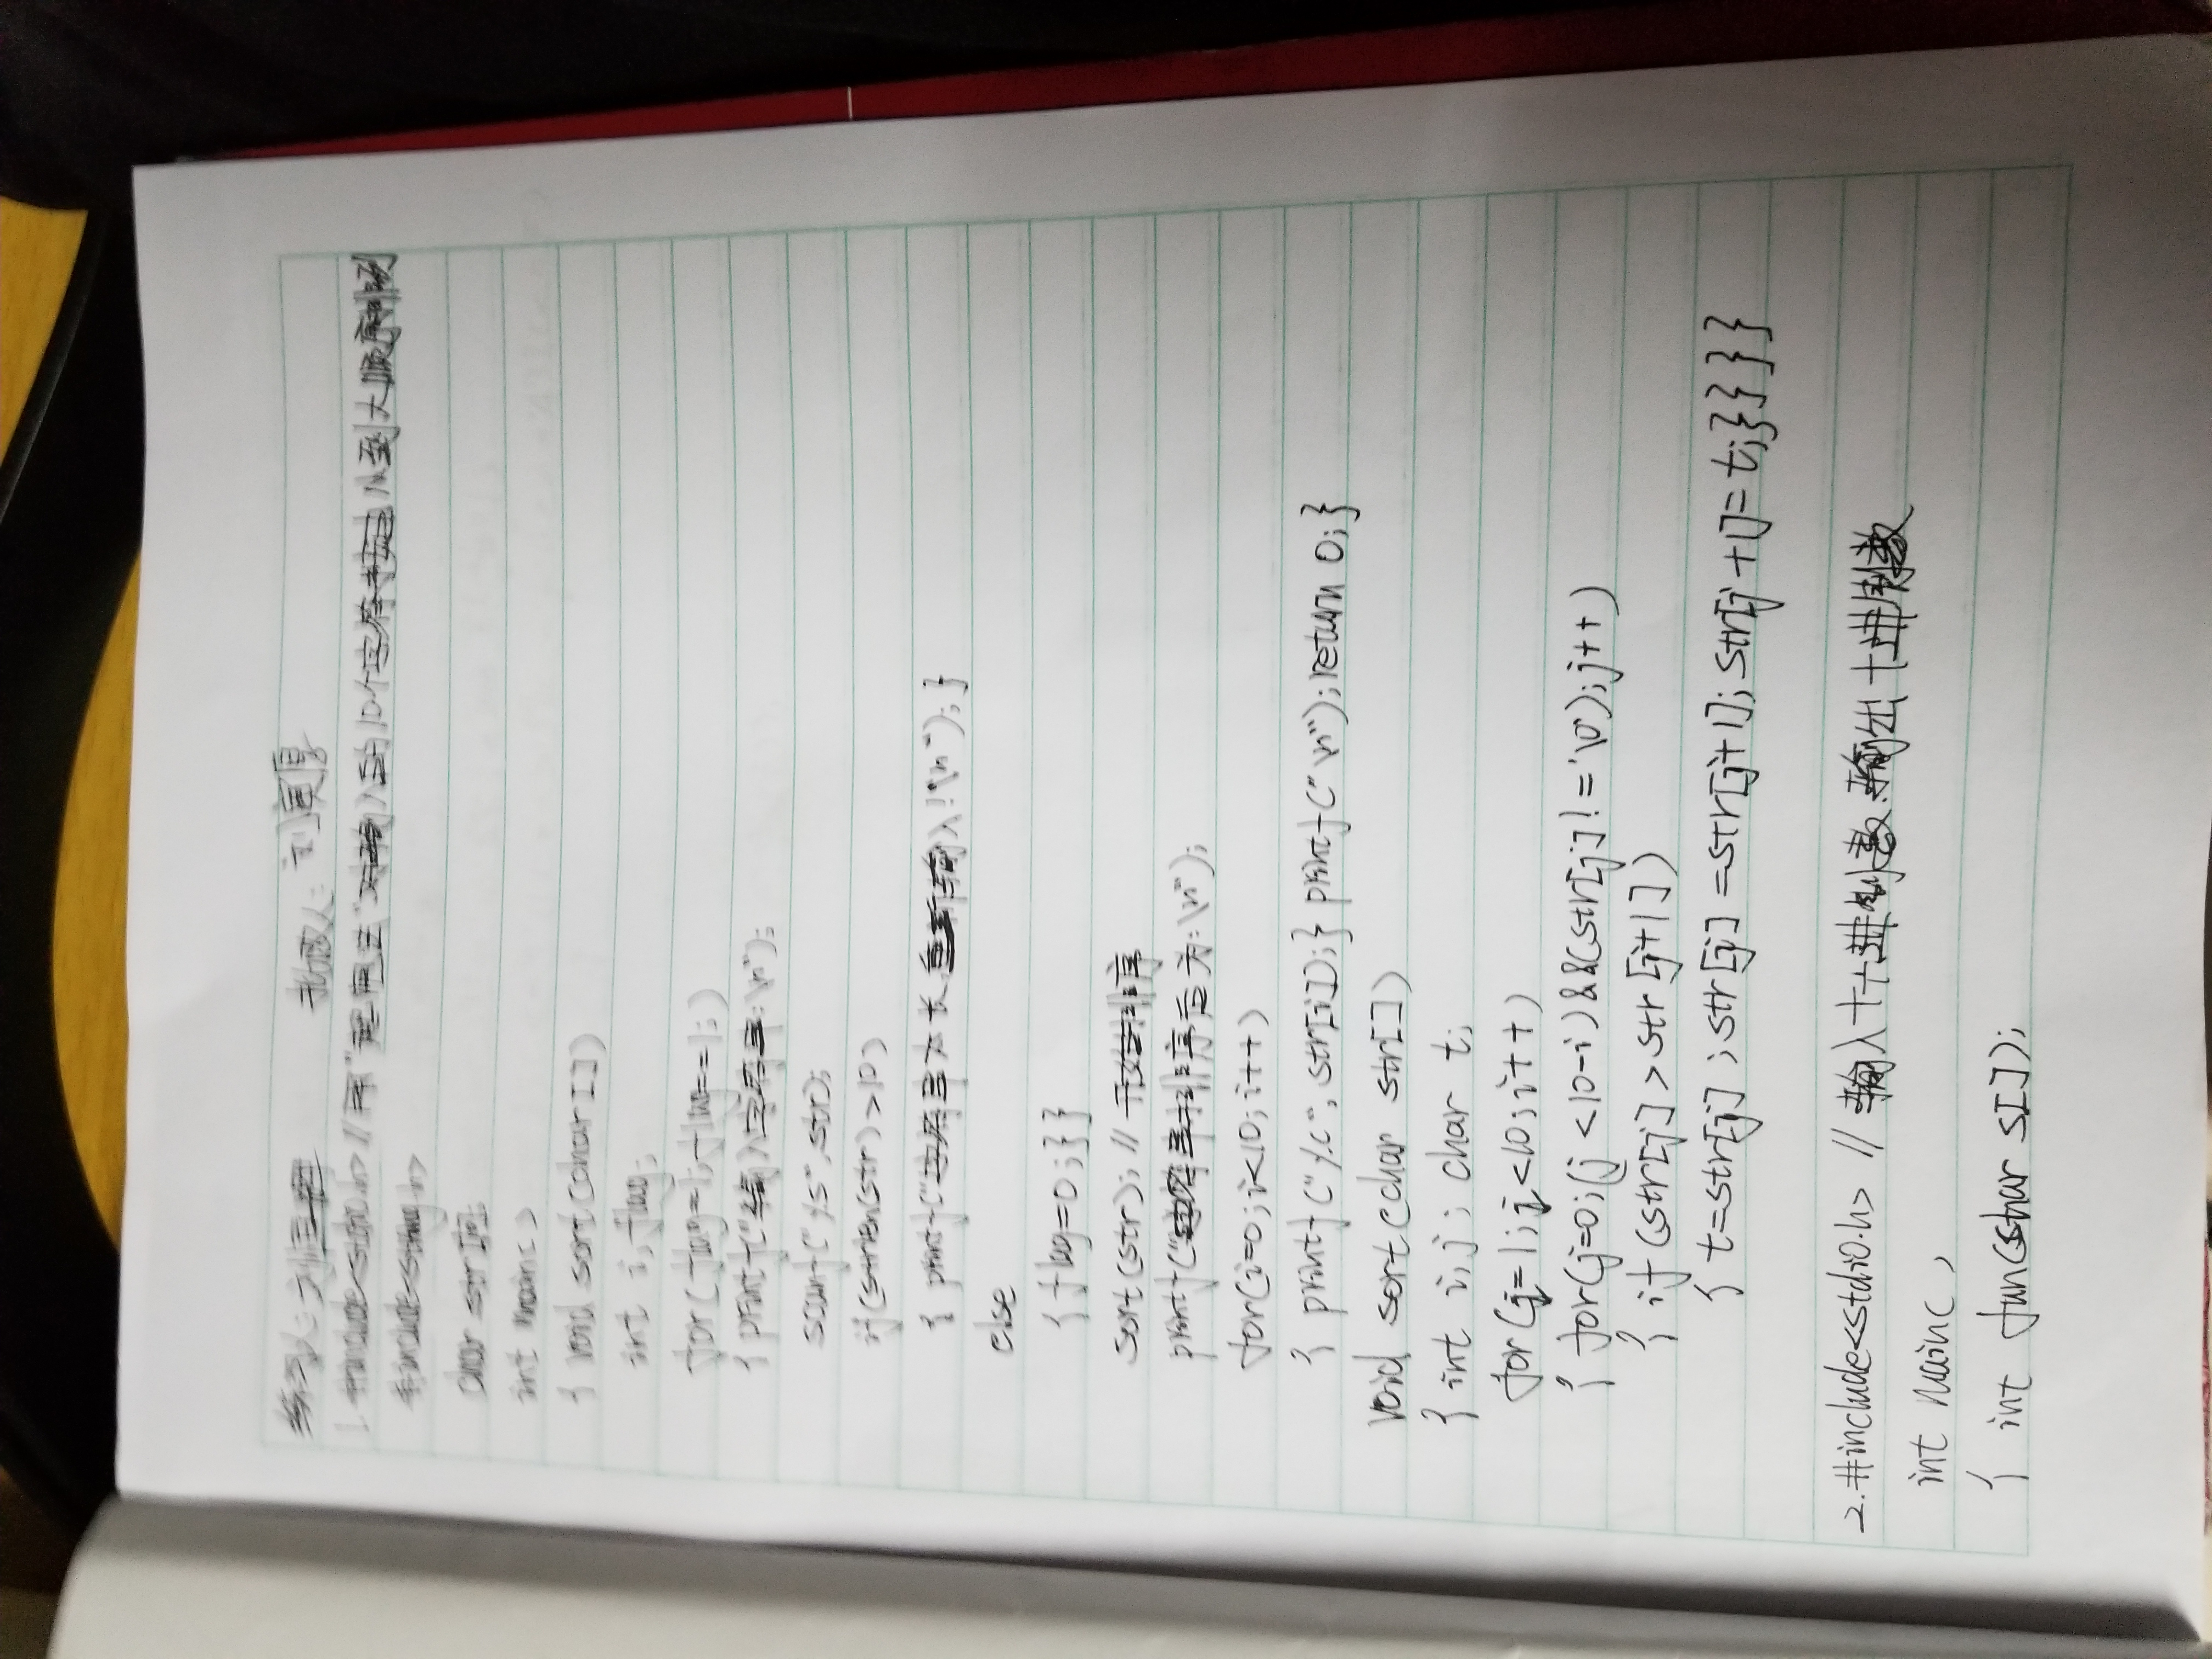 练习人: 刘 批改人: 刘寅厚
1. #include<stdio.h> //用"起泡法"对输入的10个字符按由小到大顺序排列
#include<string.h>
char str[10];
int main()
{ void sort(char[])
int i,flag;
for(flag=1;flag==1;)
{ printf("输入字符串:\n");
scanf("%s",str);
if(strlen(str)>10)
{ printf("字符串太长,重新输入!\n");}
else
{flag=0;}}
sort(str); //开始排序
printf("字符串排序后为:\n");
for(i=0;i<10;i++)
{ printf("%c",str[i]);} printf("\n");return 0;}
void sort(char str[])
{ int i,j; char t;
for(j=1;j<10;i++)
{ for(j=0;(j<10-i)&&(str[j]!='\0');j++)
{ if(str[j]>str[j+1])
{ t=str[j];str[j]=str[j+1];str[j+1]=t;}}}}
2.#include<stdio.h> //输入十六进制数,输出十进制数
int main()
{ int fun(char s[]);